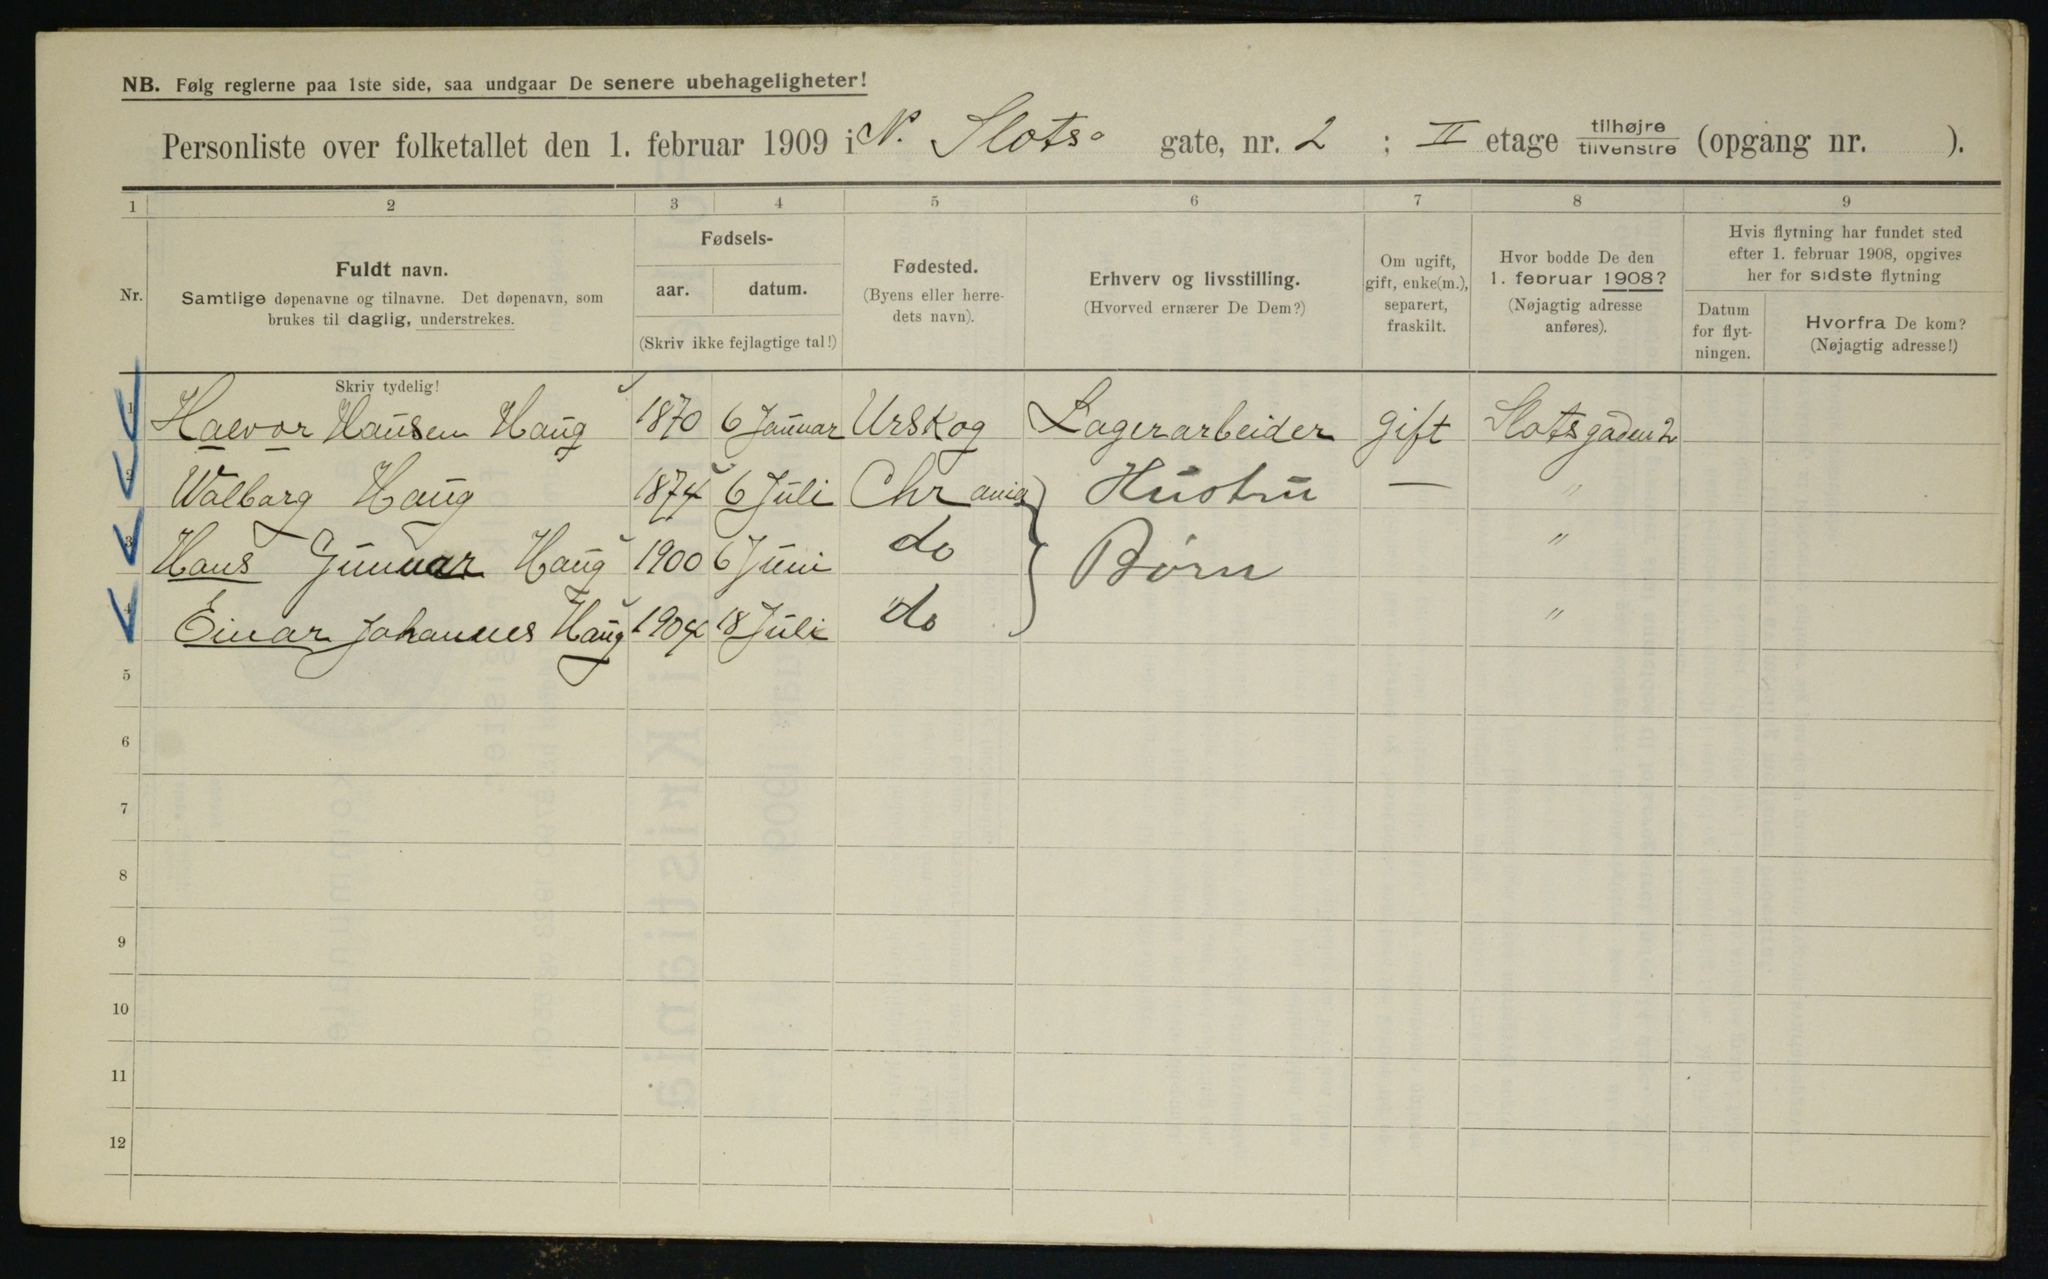 NB. Følg reglerne paa 1ste side, saa undgaar De senere ubehageligheter!
Personliste over folketallet den 1. februar 1909 i N. Slots- gate, nr. 2 ; II etage tilhøjre tilvenstre (opgang nr. ).
1 2 3 4 5 6 7 8 9
Nr.
Fuldt navn.
Samtlige døpenavne og tilnavne. Det døpenavn, som
brukes til daglig, understrekes.
Fødsels-
aar. datum.
(Skriv ikke fejlagtige tal!)
Fødested.
(Byens eller herre-
dets navn).
Erhverv og livsstilling.
(Hvorved ernærer De Dem?)
Om ugift,
gift, enke(m.),
separert,
fraskilt.
Hvor bodde De den
1. februar 1908?
(Nøjagtig adresse
anføres).
Hvis flytning har fundet sted
efter 1. februar 1908, opgives
her for sidste flytning
Datum
for flyt-
ningen.
Hvorfra De kom?
(Nøjagtig adresse!)
Skriv tydelig!
1 Halvor Hansen Haug 1870 6 Januar Urskog Lagerarbeider gift Slotsgaden 2
2 Walborg Haug 1874 6 Juli Chrania Hustru — "
3 Hans Gunnar Haug 1900 6 Juni do } Børn "
4 Einar Johannes Haug 1904 18 Juli do "
5
6
7
8
9
10
11
12